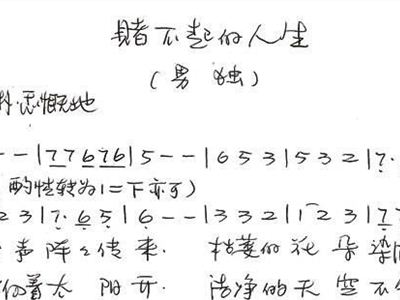 赌不起的人生
(男 独)
感慨地
- - | 7 7 6 7 6 | 5 - - | 6 5 3 | 5 3 2 | 7 .
酌情转为1=下亦可)
2 3 | 7 . 6 5 | 6 - - | 3 3 2 | 1 2 3 | 7 7
声阵々传来. 枯萎的花朵染
着太阳开. 洁净的天空不